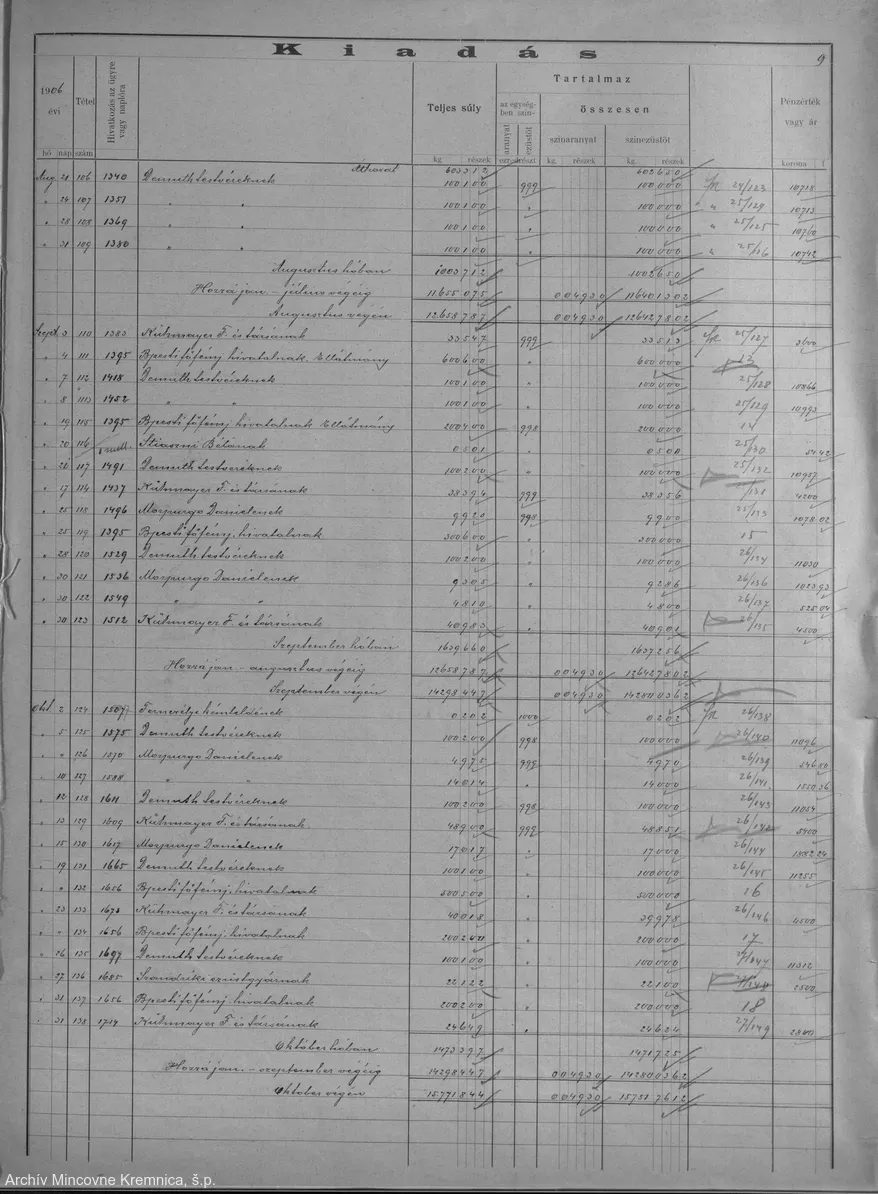 Kiadás
9
1906 évi
hó nap
Tétel szám
Hivatkozás az ügyre vagy naplóra
Teljes súly
kg. részek
Tartalmaz
az egységben szín-
aranyat ezüstöt
ezredrészt
összesen
színaranyat
kg. részek
színezüstöt
kg. részek
Pénzérték vagy ár
korona f
Áthozat 603312 602650
Aug 21 106 1340 Demuth testvéreknek 100100 999 100000 24/123 10718
" 24 107 1351 " " 100100 " 100000 " 25/124 10713
" 28 108 1369 " " 100100 " 100000 " 25/125 10760
" 31 109 1380 " " 100100 " 100000 " 25/126 10742
Augusztus hóban 1003712 1002650
Hozzá jan.-július végéig 11655075 004930 11640 1302
Augusztus végén 12658787 004930 12642 7802
Szept 3 110 1383 Kühmayer F. és társának 33547 999 33513 25/127 3600
" 4 111 1395 Bpesti főfémj. hivatalnak Ellátmány 600600 " 600000 13
" 7 112 1418 Demuth testvéreknek 100100 " 100000 25/128 10866
" 8 113 1452 " " 100100 " 100000 25/129 10993
" 19 115 1395 Bpesti főfémj. hivatalnak Ellátmány 200400 998 200000 14
" 20 116 Stiaszni Bélának 0501 " 0500 25/130 54.42
" 20 117 1491 Demuth testvéreknek 100200 " 100000 25/132 10957
" 17 114 1437 Kühmayer F. és társának 38394 999 38356 /131 4200
" 25 118 1496 Morpurgo Dánielnek 9920 998 9900 25/133 1078.02
" 25 119 1395 Bpesti főfémj. hivatalnak 300600 " 300000 15
" 28 120 1529 Demuth testvéreknek 100200 " 100000 26/134 11030
" 30 121 1536 Morpurgo Dánielnek 9305 " 9286 26/136 1023.93
" 30 122 1549 " " 4810 " 4800 26/137 525.04
" 30 123 1512 Kühmayer F. és társának 40983 " 40901 26/135 4500
Szeptember hóban 1639660 1637256
Hozzá jan.-augusztus végéig 12658787 004930 12642 7802
Szeptember végén 14298447 004930 14280 0362
Okt 2 124 1507 0202 1000 0202 26/138
" 5 125 1575 Demuth testvéreknek 100200 998 100000 26/140 11096
" " 126 1570 Morpurgo Dánielnek 4975 999 4970 26/139 546.80
" 10 127 1588 " " 14014 " 14000 26/141 1550.36
" 12 128 1611 Demuth testvéreknek 100200 998 100000 26/143 11054
" 13 129 1609 Kühmayer F. és társának 48900 999 48851 26/142 5400
" 15 130 1617 Morpurgo Dánielnek 17017 " 17000 26/144 1882.24
" 19 131 1665 Demuth testvéreknek 100100 " 100000 26/145 11255
" " 132 1656 Bpesti főfémj. hivatalnak 500500 " 500000 16
" 23 133 1673 Kühmayer F. és társának 40018 " 39978 26/146 4500
" " 134 1656 Bpesti főfémj. hivatalnak 200200 " 200000 17
" 26 135 1697 Demuth testvéreknek 100100 " 100000 27/147 11312
" 27 136 1685 Szandriki ezüstgyárnak 22122 " 22100 2500
" 31 137 1656 Bpesti főfémj. hivatalnak 200200 " 200000 18
" 31 138 1714 Kühmayer F. és társának 24649 " 24624 27/149 2800
Október hóban 1473397 1471725
Hozzá jan.-szeptember végéig 14298447 004930 14280 0362
Október végén 15771844 004930 15751 7612
Archív Mincovne Kremnica, š.p.